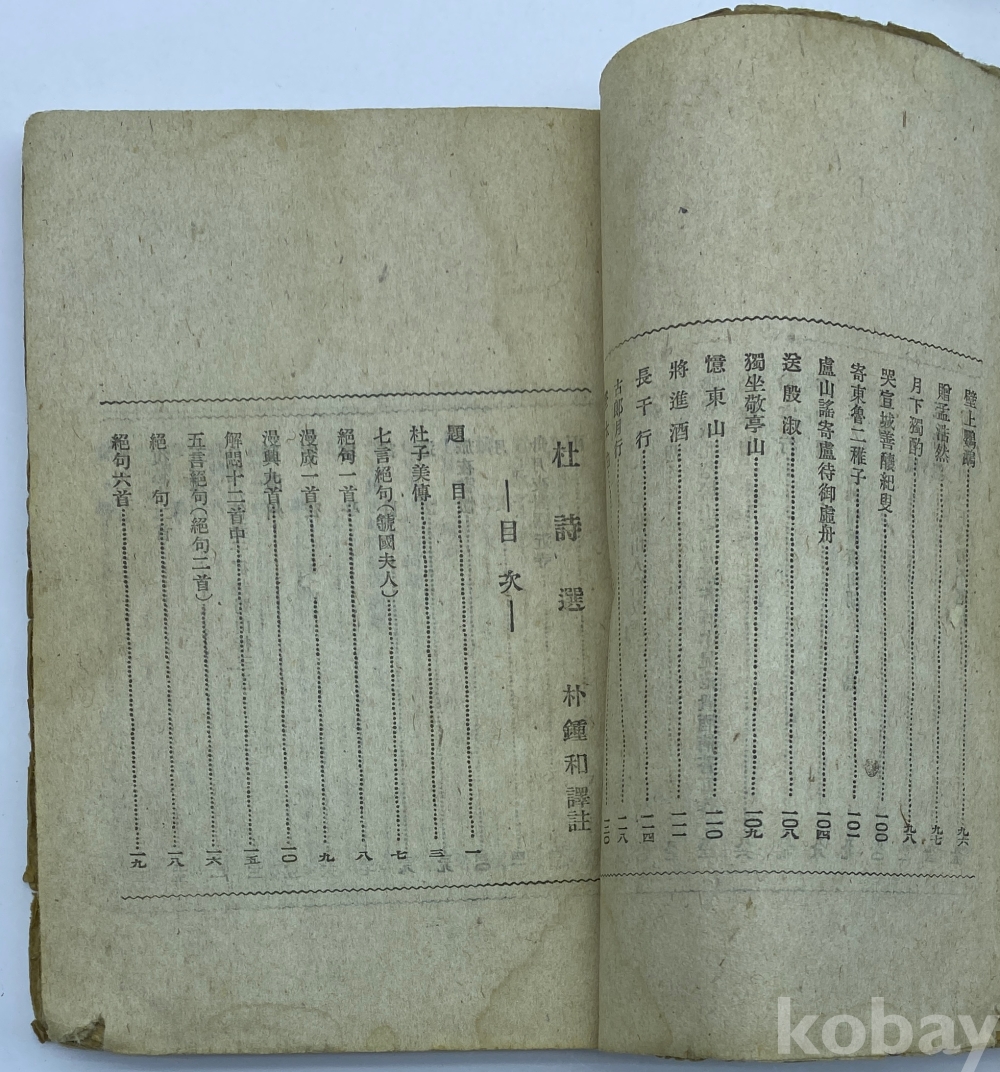 壁上鸚鵡 九六
贈孟浩然 九七
月下獨酌 九八
哭宣城善釀紀叟 一〇〇
寄東魯二稚子 一〇一
盧山謠寄盧待御虛舟 一〇四
送殷淑 一〇八
獨坐敬亭山 一〇九
憶東山 一一〇
將進酒 一一一
長干行 一一四
古郎月行 一一八
一二〇
杜詩選 朴鍾和譯註
—目次—
題目 一
杜子美傳 三
七言絕句(虢國夫人) 七
絕句一首 八
漫成一首 九
漫興九首 一〇
解悶十二首中 一五
五言絕句(絕句二首) 一六
絕句 一八
絕句六首 一九
kobay